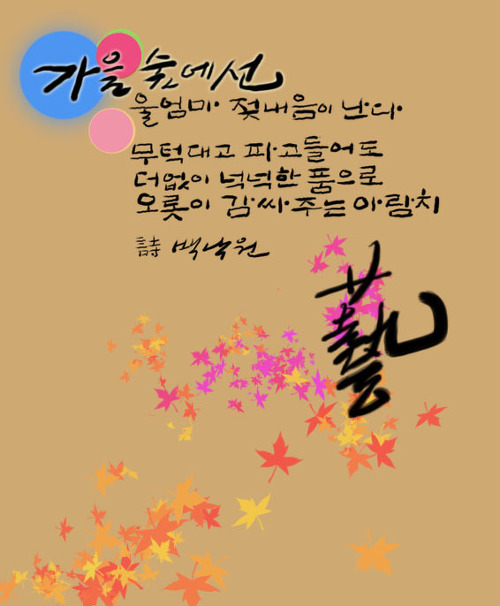 가을 숲에선
울엄마 젖내음이 난다
무턱대고 파고들어도
더없이 넉넉한 품으로
오롯이 감싸주는 아람치
詩 백낙원
藝